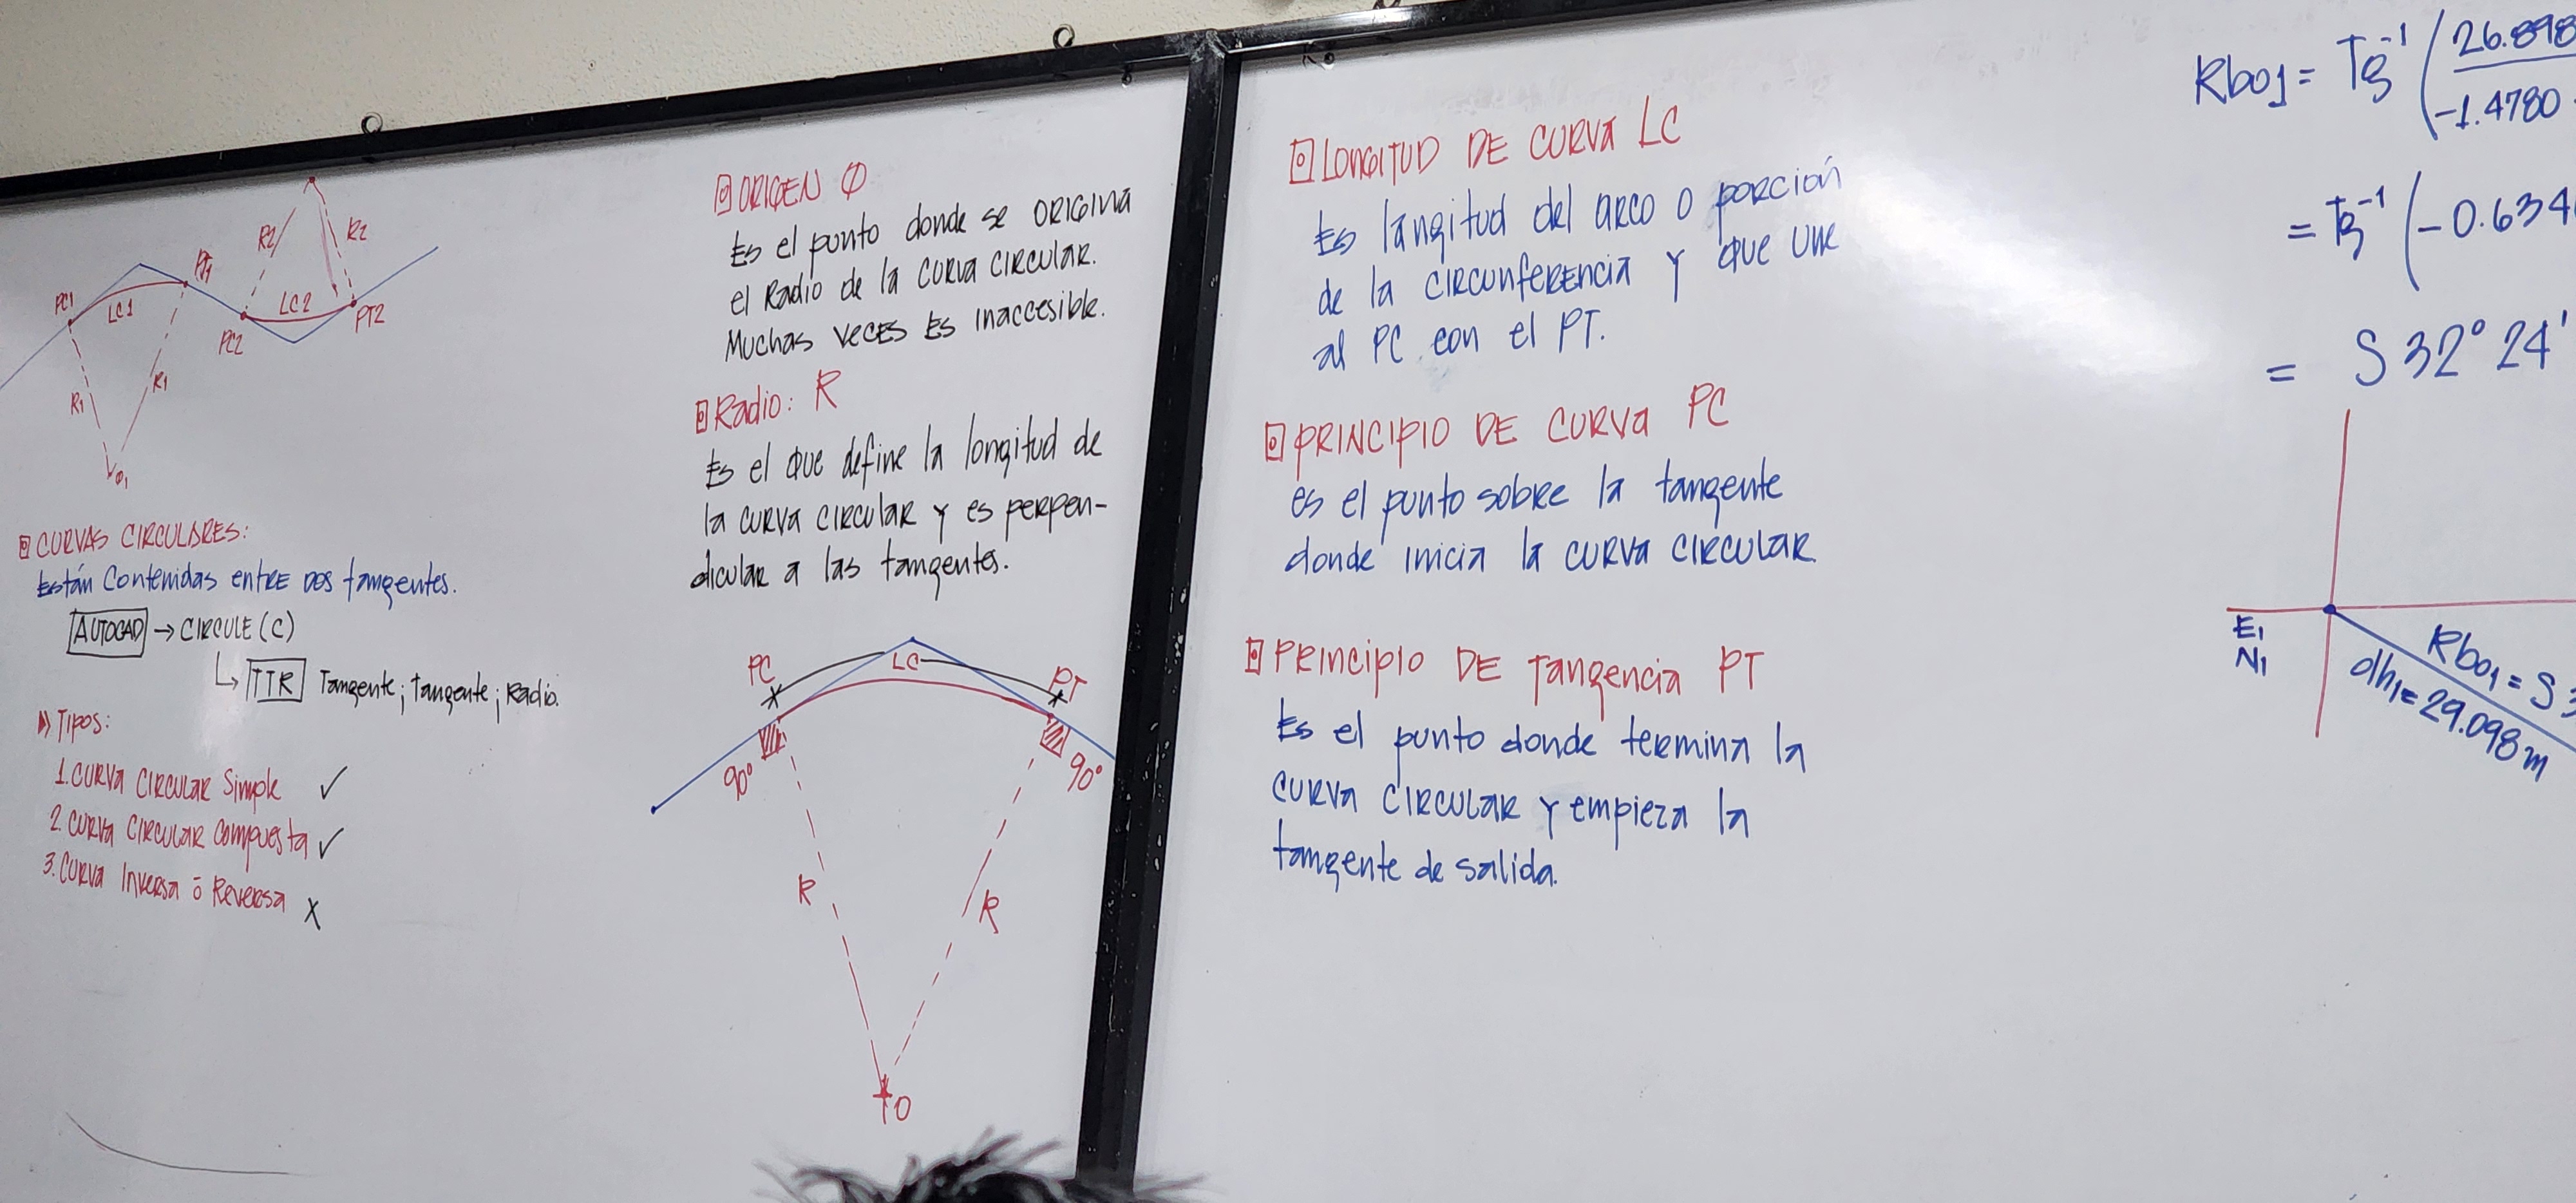 PC1
LC1
PT1
R1
R1
O1
R2
R2
PC2
LC2
PT2
CURVAS CIRCULARES:
Están Contenidas entre Dos tangentes.
AUTOCAD → CIRCULE (C)
TTR Tangente; Tangente; Radio.
Tipos:
1. CURVA CIRCULAR Simple ✓
2. CURVA CIRCULAR Compuesta ✓
3. CURVA Inversa ó Reversa X
ORIGEN O
Es el punto donde se ORIGINA
el Radio de la CURVA CIRCULAR.
Muchas veces Es inaccesible.
Radio: R
Es el que define la longitud de
la CURVA CIRCULAR y es perpen-
dicular a las tangentes.
PC
LC
PT
90°
90°
R
R
O
LONGITUD DE CURVA LC
Es langitud del arco o porción
de la circunferencia y que une
al PC con el PT.
PRINCIPIO DE CURVA PC
es el punto sobre la tangente
donde inicia la CURVA CIRCULAR.
PRINCIPIO DE Tangencia PT
Es el punto donde termina la
CURVA CIRCULAR y empieza la
tangente de salida.
Rbo1 = Tg⁻¹ (26.898
-1.4780
= Tg⁻¹ (-0.634
= S 32° 24'
E1
N1
Rbo1 = S 3
dh1 = 29.098 m